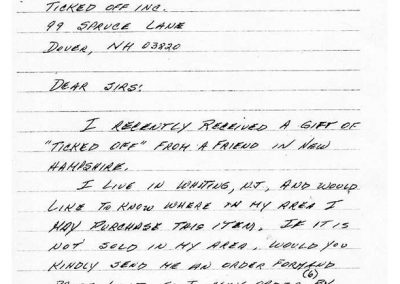 TICKED OFF INC.
99 SPRUCE LANE
DOVER, NH 03820
DEAR SIRS:
I RECENTLY RECEIVED A GIFT OF
"TICKED OFF" FROM A FRIEND IN NEW
HAMPSHIRE.
I LIVE IN WHITING, NJ, AND WOULD
LIKE TO KNOW WHERE IN MY AREA I
MAY PURCHASE THIS ITEM. IF IT IS
NOT SOLD IN MY AREA, WOULD YOU
KINDLY SEND ME AN ORDER FORM AND
(6)